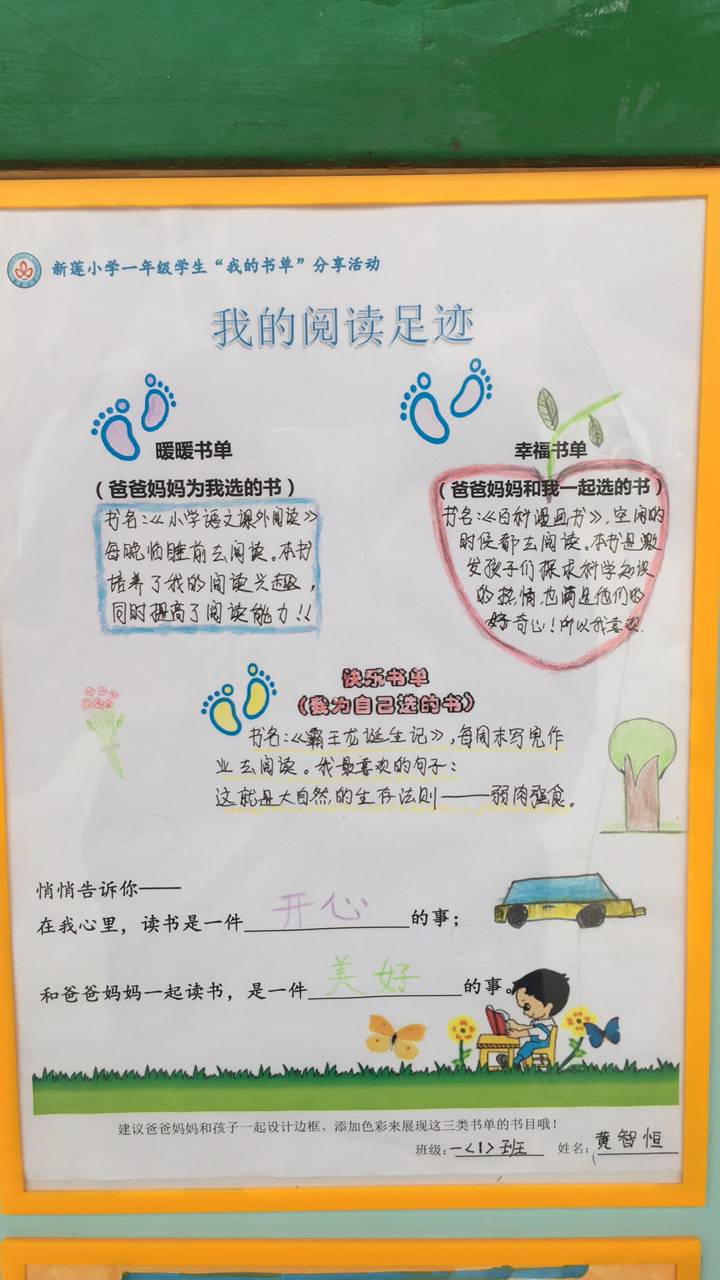 新莲小学一年级学生“我的书单”分享活动
我的阅读足迹
暖暖书单
（爸爸妈妈为我选的书）
书名：《小学语文课外阅读》
每晚临睡前去阅读。本书
培养了我的阅读兴趣，
同时提高了阅读能力！！
幸福书单
（爸爸妈妈和我一起选的书）
书名：《百科漫画书》，空闲的
时候都去阅读。本书是激
发孩子们探求科学知识
的热情，也满足他们的
好奇心！所以我喜欢.
快乐书单
（我为自己选的书）
书名：《霸王龙诞生记》，每周末写完作
业去阅读。我最喜欢的句子：
这就是大自然的生存法则——弱肉强食。
悄悄告诉你——
在我心里，读书是一件开心的事；
和爸爸妈妈一起读书，是一件美好的事。
建议爸爸妈妈和孩子一起设计边框、添加色彩来展现这三类书单的书目哦！
班级：一<1>班 姓名：黄智恒